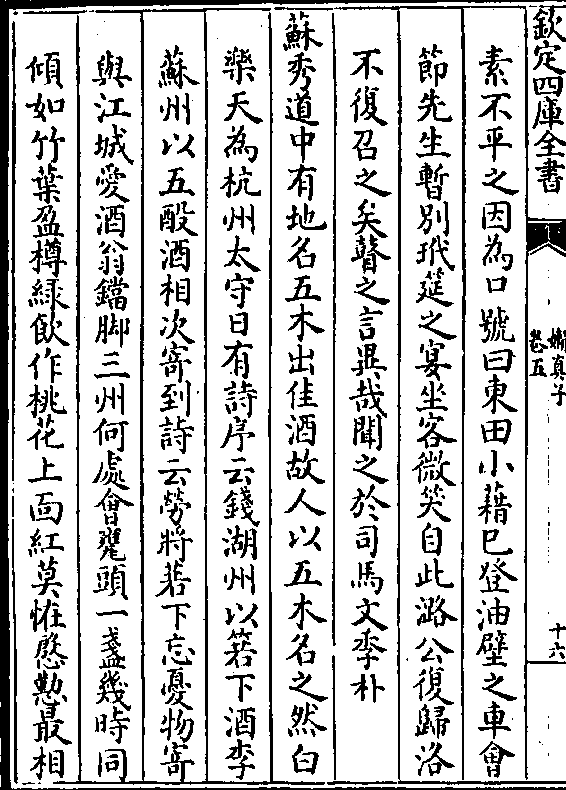 欽定四庫全書
嬾真子
卷五
十六
素不平之因為口號曰東田小藉已登油壁之車會
節先生暫別玳筵之宴坐客微笑自此潞公復歸洛
不復召之矣瞽之言異哉聞之於司馬文季朴
蘇秀道中有地名五木出佳酒故人以五木名之然白
樂天為杭州太守日有詩序云錢湖州以箬下酒李
蘇州以五酘酒相次寄到詩云勞將箬下忘憂物寄
與江城愛酒翁鐺脚三州何處會甕頭一盞幾時同
傾如竹葉盈樽綠飲作桃花上面紅莫怪慇懃最相